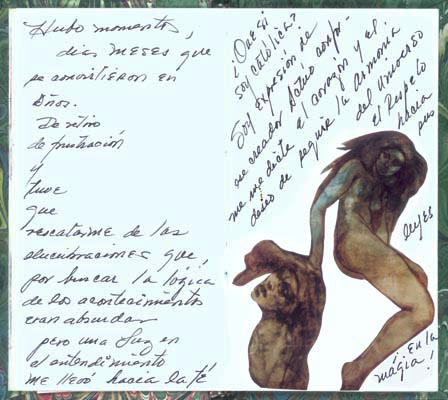 Hubo momentos,
días meses que
se convirtieron en
años.
De retiro
de frustración
y
tuve
que
rescatarme de las
elucubraciones que,
por buscar la lógica
de los acontecimientos
eran absurdas
pero una luz en
el entendimiento
me llevó hacia la fé
¿Que si
soy católica?
Soy expresión de
ese creador. Actúo confor-
me me dicte el corazón y el
deseo de seguir la Armonía
del universo
el Respeto
hacia
sus
leyes
¡en la
mágia!